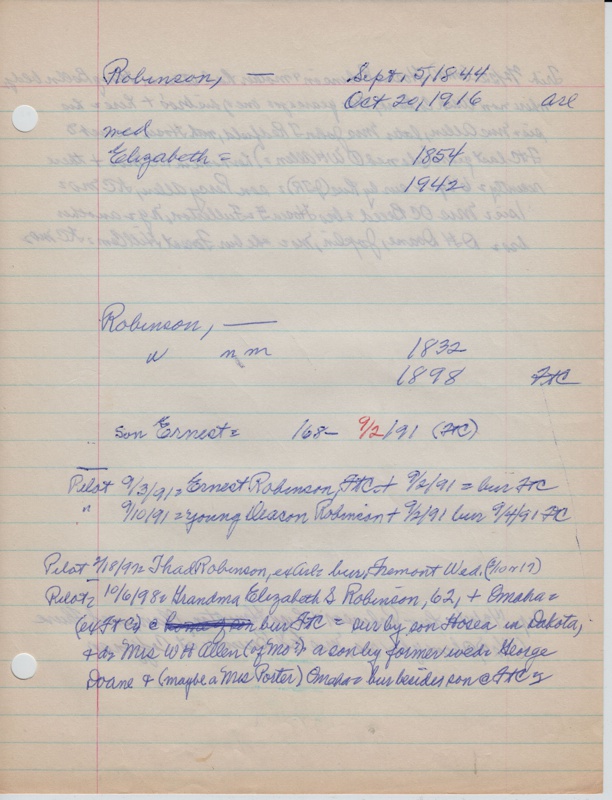 Robinson, — Sept. 5, 1844
Oct 20, 1916 are
med
Elizabeth = 1854
1942
Robinson, —
w n m 1832
1898 FtC
son Ernest = 168- 9/2/91 (FtC)
Pilot 9/3/91 = Ernest Robinson, FtC + 9/2/91 = bur FtC
" 9/10/91 = young Deacon Robinson + 9/2/91 bur 9/4/91 FC
Pilot /18/92 = Thad Robinson, ex bur, Fremont Wed. (2/10 or 17)
Pilot = 10/6/98 = Grandma Elizabeth S Robinson, 62, + Omaha =
(ex FtC) c bur FtC = sur by son Hosea in Dakota,
+ da Mrs W H Allen (of Mo?) a son by former wed = George
Doane + (maybe a Mrs Porter) Omaha = bur besides son @ FtC